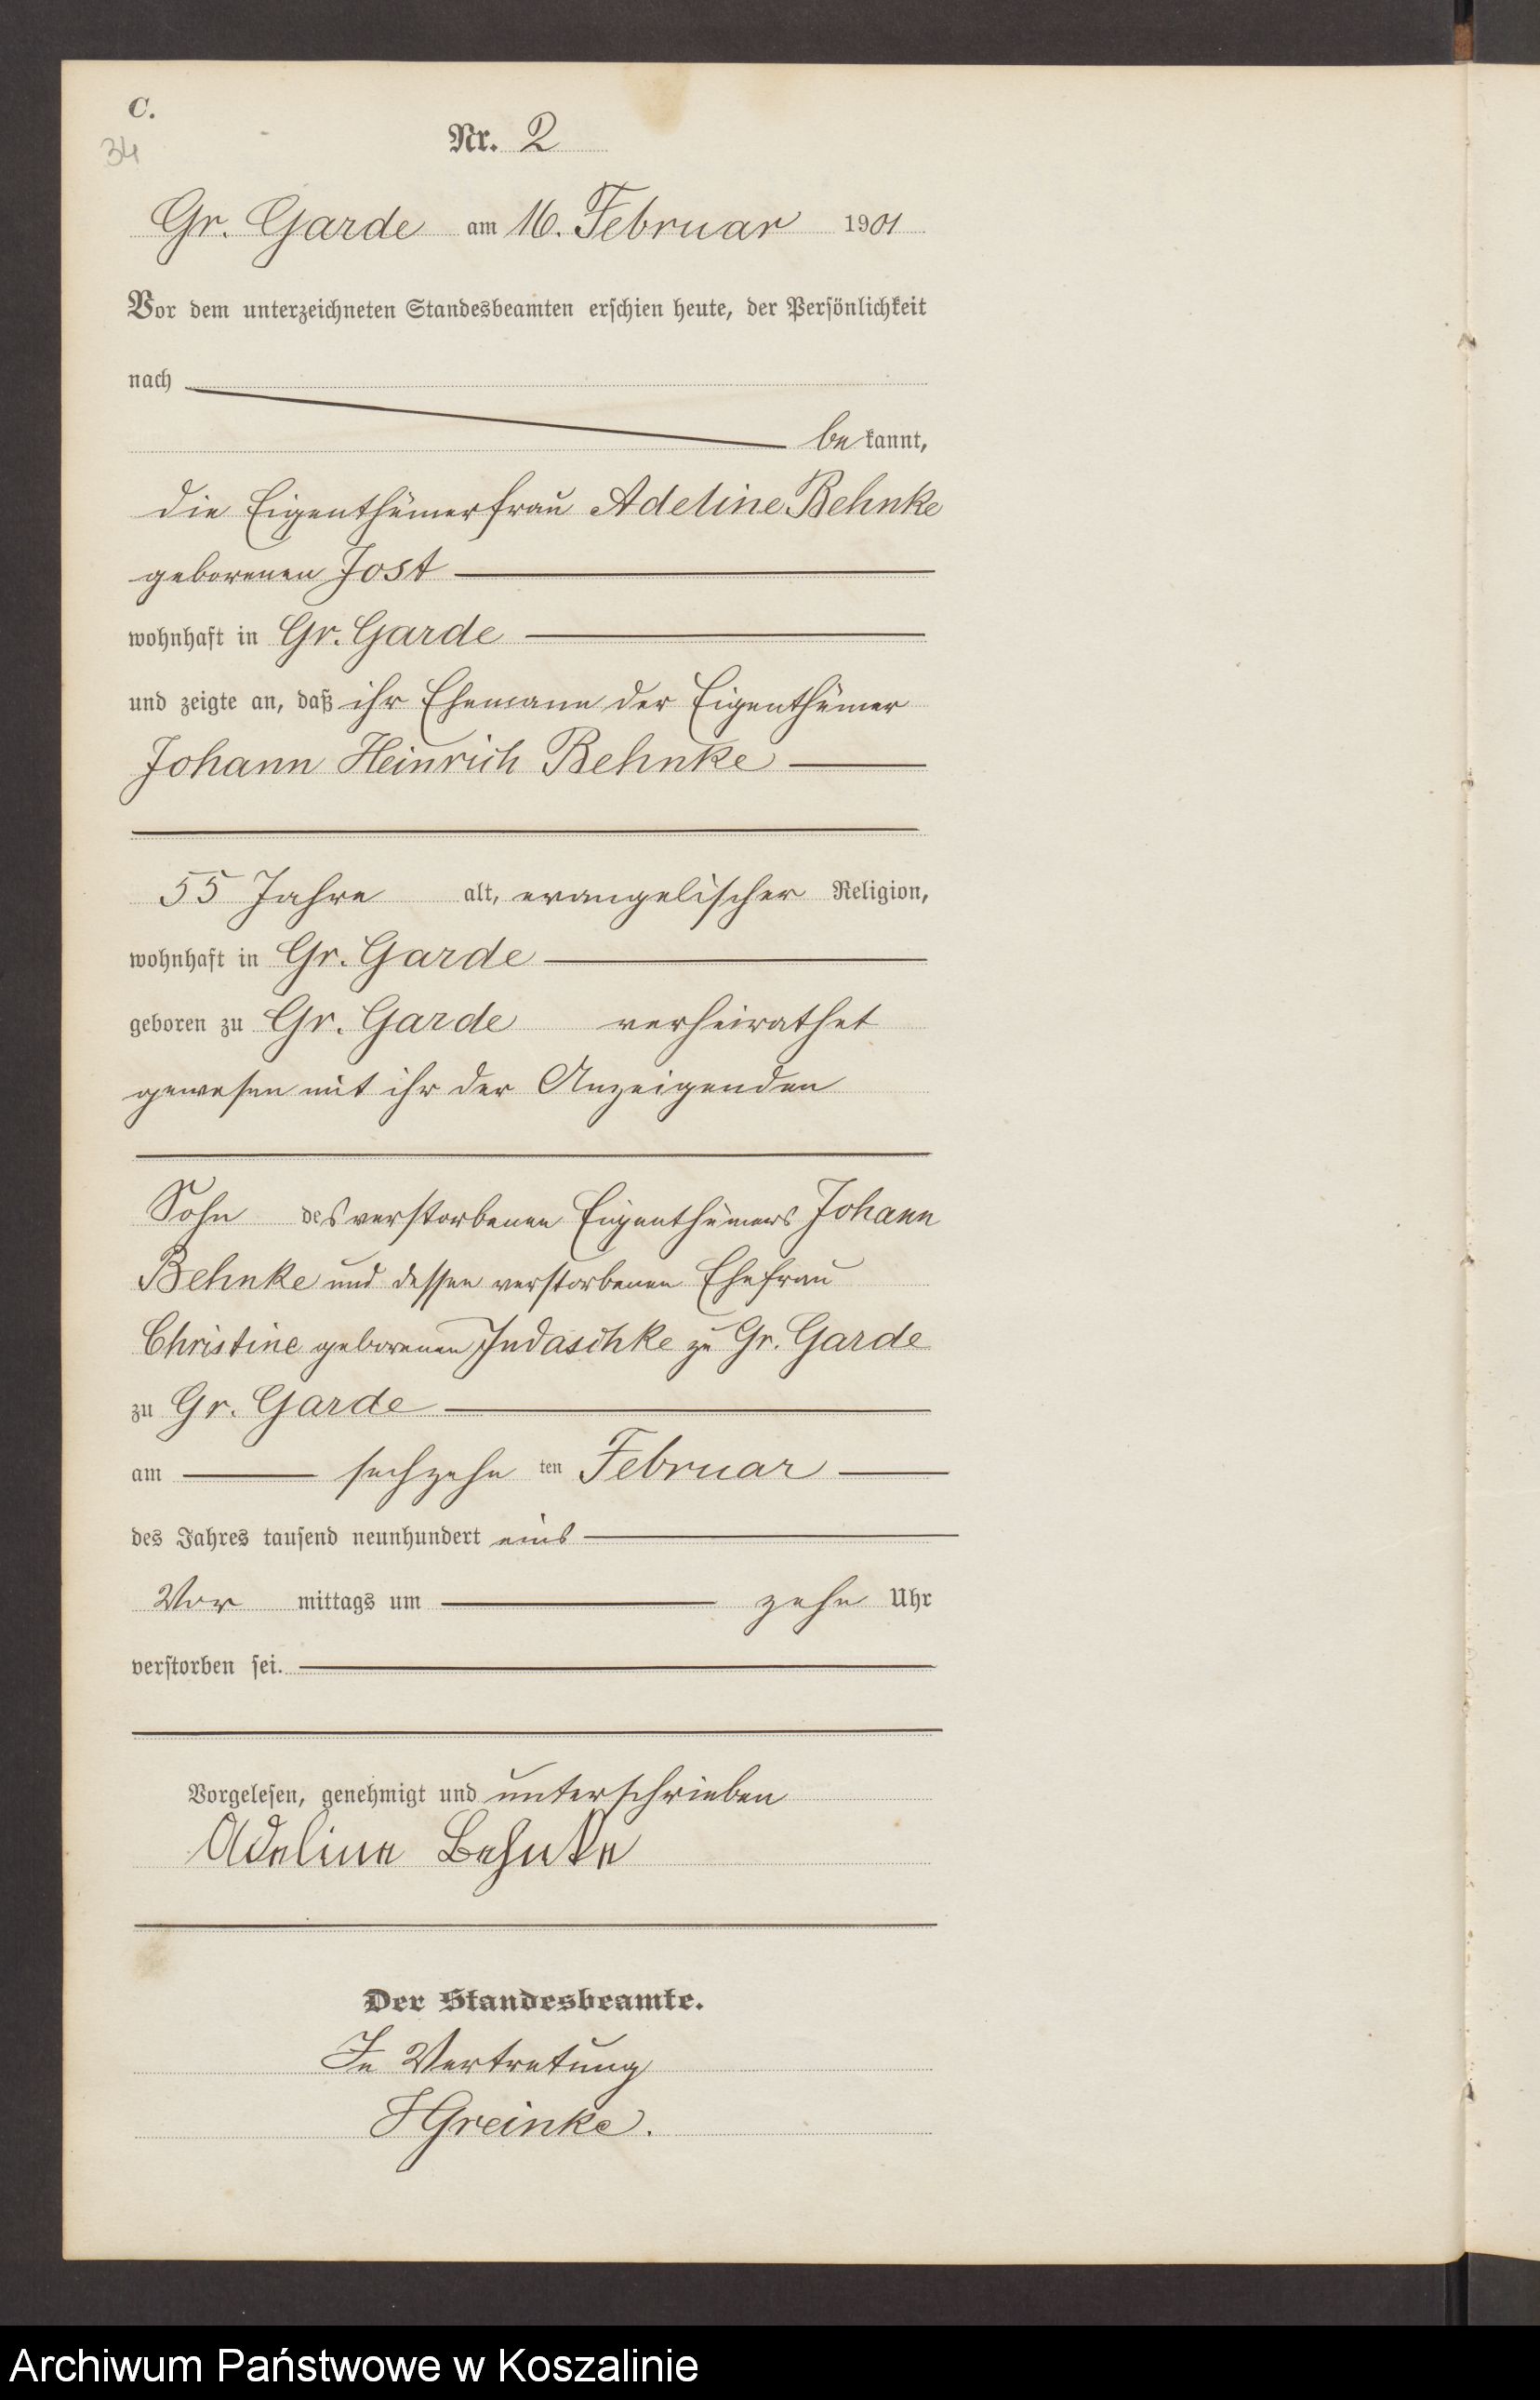 C.
34
Nr. 2
Gr. Garde am 16. Februar 1901
Vor dem unterzeichneten Standesbeamten erschien heute, der Persönlichkeit
nach
bekannt,
die Eigenthümerfrau Adeline Behnke
geborenen Jost
wohnhaft in Gr. Garde
und zeigte an, daß ihr Ehemann der Eigenthümer
Johann Heinrich Behnke
55 Jahre alt, evangelischer Religion,
wohnhaft in Gr. Garde
geboren zu Gr. Garde verheirathet
gewesen mit ihr der Anzeigenden
Sohn des verstorbenen Eigenthümers Johann
Behnke und dessen verstorbenen Ehefrau
Christine geborenen Judaschke zu Gr. Garde
zu Gr. Garde
am sechzehnten Februar
des Jahres tausend neunhundert eins
Vormittags um zehn Uhr
verstorben sei.
Vorgelesen, genehmigt und unterschrieben
Adeline Behnke
Der Standesbeamte.
In Vertretung
HGreinke.
Archiwum Państwowe w Koszalinie